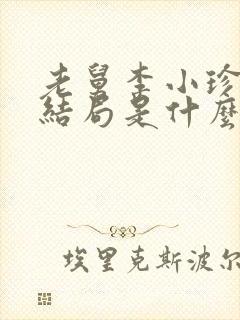 老舅李小珍
結局是什麼
埃里克斯波尔